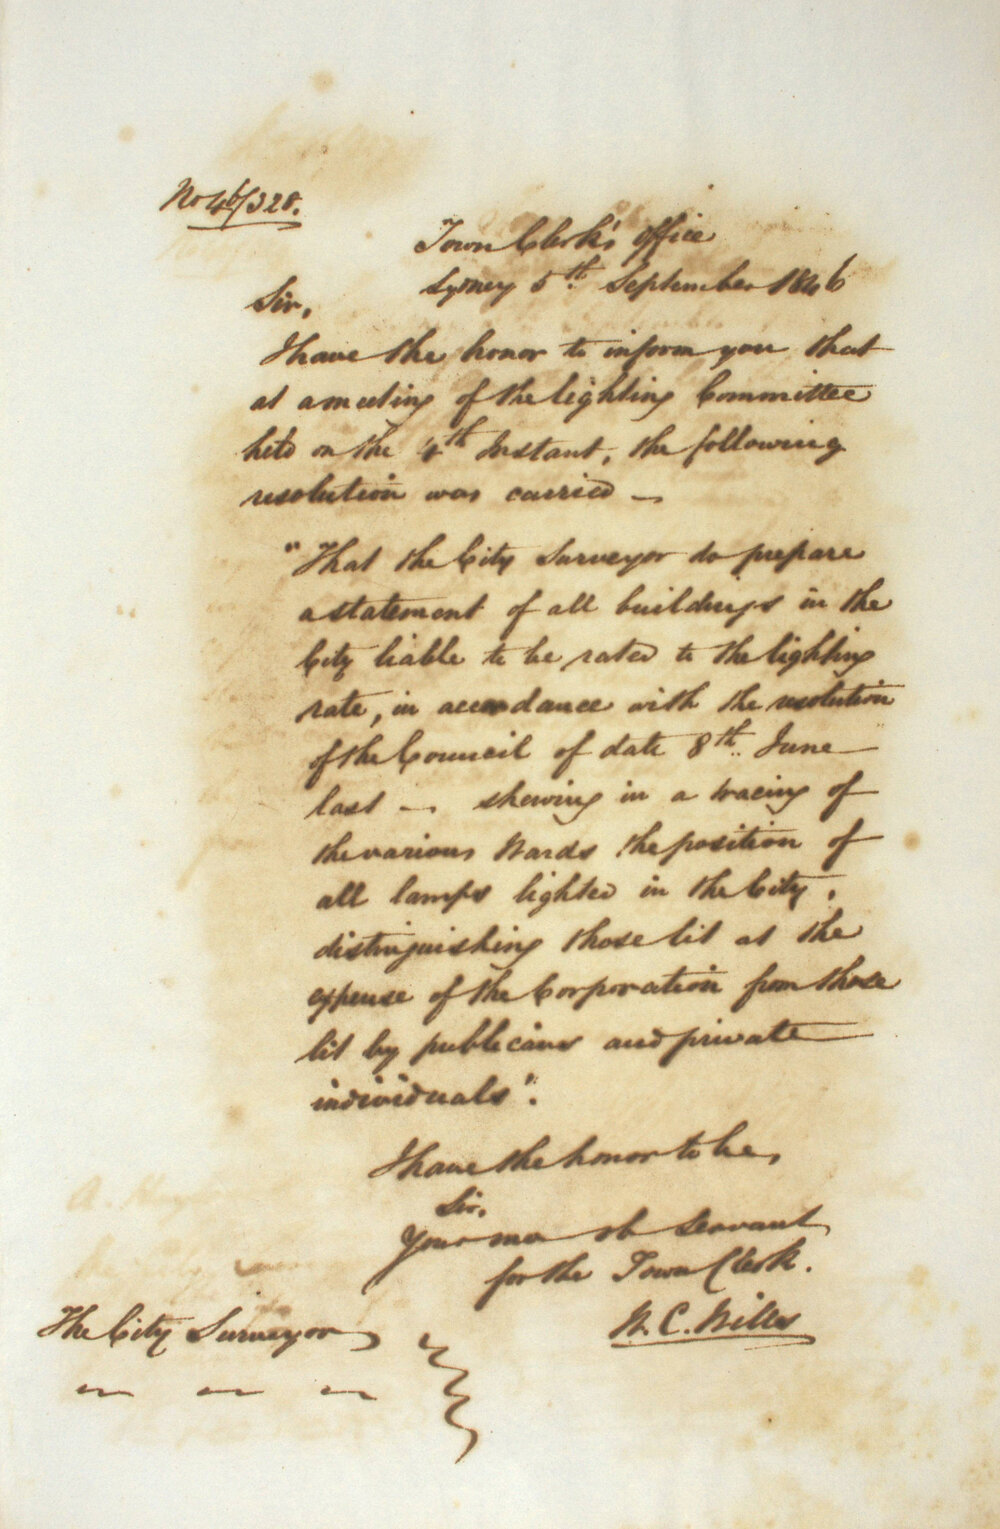 No 46/328.
Town Clerk's Office
Sydney 5th September 1846
Sir,
I have the honor to inform you that
at a meeting of the Lighting Committee
held on the 4th Instant, the following
resolution was carried —
"That the City Surveyor do prepare
a statement of all buildings in the
City liable to be rated to the lighting
rate, in accordance with the resolution
of the Council of date 8th June
last — shewing in a tracing of
the various Wards the position of
all lamps lighted in the City,
distinguishing those lit at the
expense of the Corporation from those
lit by publicans and private
individuals".
I have the honor to be,
Sir,
Your mo ob Servant
for the Town Clerk.
W. C. Wills
The City Surveyor